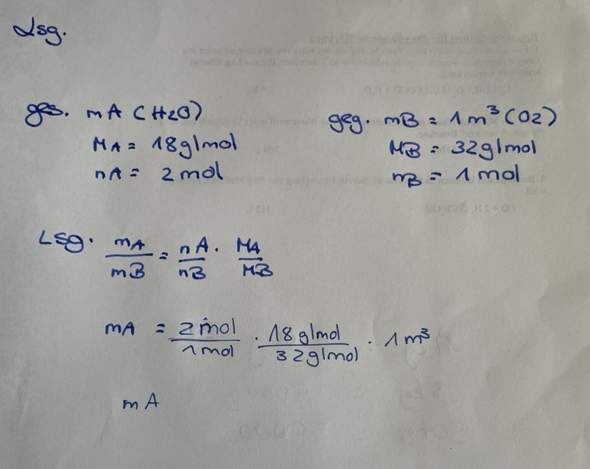 Lsg.
ges. mA (H2O)
MA = 18g/mol
nA = 2mol
geg. mB = 1m³ (O2)
MB = 32g/mol
nB = 1mol
Lsg. mA/mB = nA/nB · MA/MB
mA = 2mol/1mol · 18g/mol/32g/mol · 1m³
mA